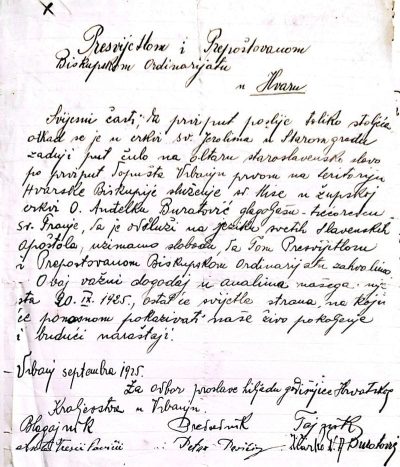 x
Presvijetlom i Prepoštovanom
Biskupskom Ordinarijatu
u Hvaru
Svijesni časti, da prvi put poslije toliko stoljeća
otkad se je u crkvi sv. Jerolima u Staromgradu
zadnji put čulo na oltaru staroslavensko slovo
po prvi put dopušta Vrbanju prvom na teritoriju
Hvarske Biskupije služenje sv. Mise u župskoj
crkvi O. Anđelka Buratović glagoljaša - trećoredca
sv. Franje, da je odsluži na jeziku svetih Slavenskih
apoštola, uzimamo slobodu, da Tom Presvijetlom
i Prepoštovanom Biskupskom Ordinarijatu zahvalimo
Ovaj važni događaj u analima našega mje
sta 20. IX. 1925, ostat će svijetla strana, na koju
će ponosnom pokazivati naše živo pokoljenje
i budući naraštaji.
Vrbanj septembra 1925.
Za odbor proslave hiljadu godišnjice Hrvatskog
Kraljevstva u Vrbanju.
Blagajnik Predsjednik Tajnik
Buratović